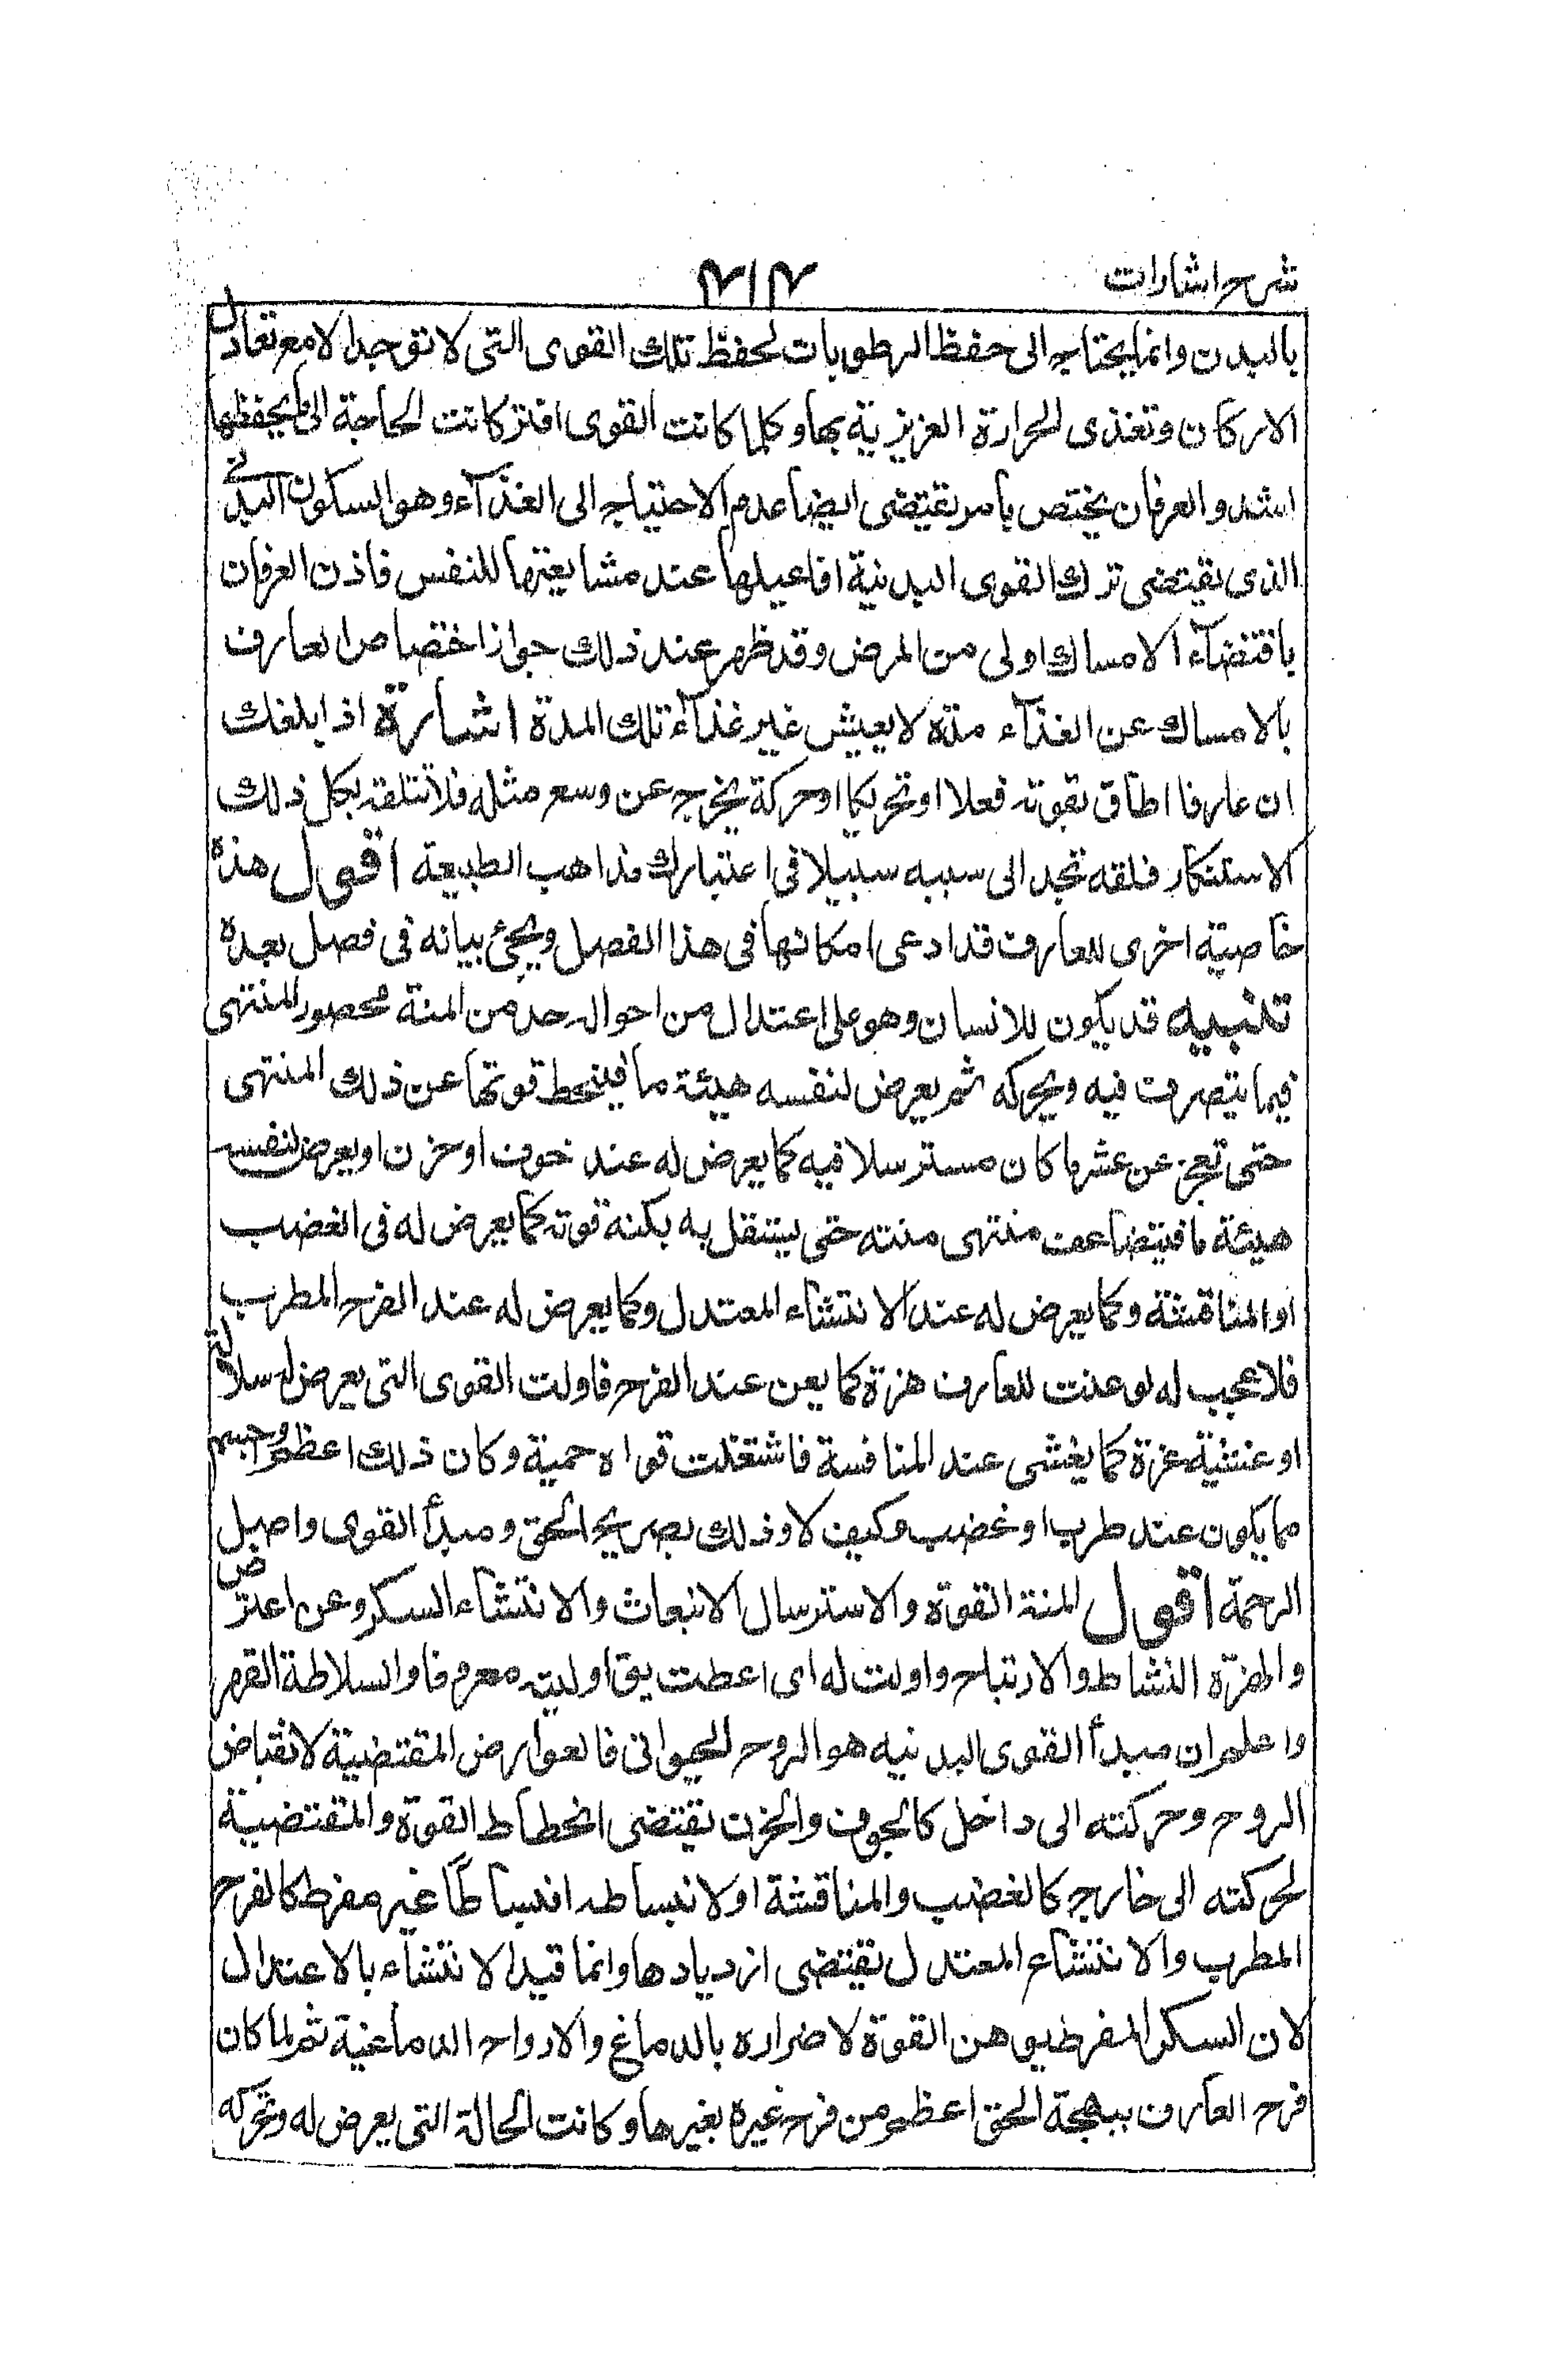 شرح اشارات
بالبدن وانما يحتاج الى حفظ الرطوبات لحفظ تلك القوى التى لا توجد الا مع تعادل
الاركان وتغذى الحرارة الغريزية بها وكلما كانت القوى افتر كانت الحاجة الى ما يحفظها
اشد والعرفان يختص بامر يقتضى ايضا عدم الاحتياج الى الغذآء وهو السكون البدنى
الذى يقتضى ترك القوى البدنية افاعيلها عند مشايعتها للنفس فاذن العرفان
باقتضآء الامساك اولى من المرض وقد ظهر عند ذلك جواز اختصاص العارف
بالامساك عن الغذآء مدّة لا يعيش غير غذآء تلك المدة اشارة اذا بلغك
ان عارفا اطاق بقوته فعلا او تحريكا او حركة يخرج عن وسع مثله فلا تتلقه بكل ذلك
الاستنكار فلقه تجد الى سببه سبيلا فى اعتبارك مذاهب الطبيعة اقول هذه
خاصية اخرى للعارف قد ادعى امكانها فى هذا الفصل ويجئ بيانه فى فصل بعده
تنبيه قد يكون للانسان وهو على اعتدال من احواله حد من المنة محصور المنتهى
فيما يتصرف فيه ويحركه ثم يعرض لنفسه هيئة ما فينحط قوتها عن ذلك المنتهى
حتى تعجز عن عشر ما كان مسترسلا فيه كما يعرض له عند خوف او حزن او يعرض لنفسه
هيئة ما فيتضاعف منتهى منته حتى يستقل به بكنه قوته كما يعرض له فى الغضب
او المناقشة وكما يعرض له عند الانتشاء المعتدل وكما يعرض له عند الفرح المطرب
فلا عجب له لو عنت للعارف هزة كما يعن عند الفرح فاولت القوى التى يعرض له سلاطة
او غشيته عزة كما يغشى عند المنافسة فاشتغلت قواه حمية وكان ذلك اعظم واجسم
مما يكون عند طرب او غضب وكيف لا وذلك بصريح الحق ومبدأ القوى واصل
الرحمة اقول المنة القوة والاسترسال الانبعاث والانتشاء السكر وعن اعترض
والهزّة النشاط والارتياح واولت له اى اعطت يق اوليته معروفا والسلاطة القهر
واعلم ان مبدأ القوى البدنيه هو الروح الحيوانى فالعوارض المقتضية لانقباض
الروح وحركته الى داخل كالخوف والحزن يقتضى انحطاط القوة والمقتضية
لحركته الى خارج كالغضب والمناقشة او لانبساطه انبساطا غير مفرط كالفرح
المطرب والانتشاء المعتدل يقتضى ازديادها وانما قيد الانتشاء بالاعتدال
لان السكر المفرط يوهن القوة لاضراره بالدماغ والارواح الدماغية ثم لما كان
فرح العارف ببهجة الحق اعظم من فرح غيره بغيرها وكانت الحالة التى يعرض له وتحركه